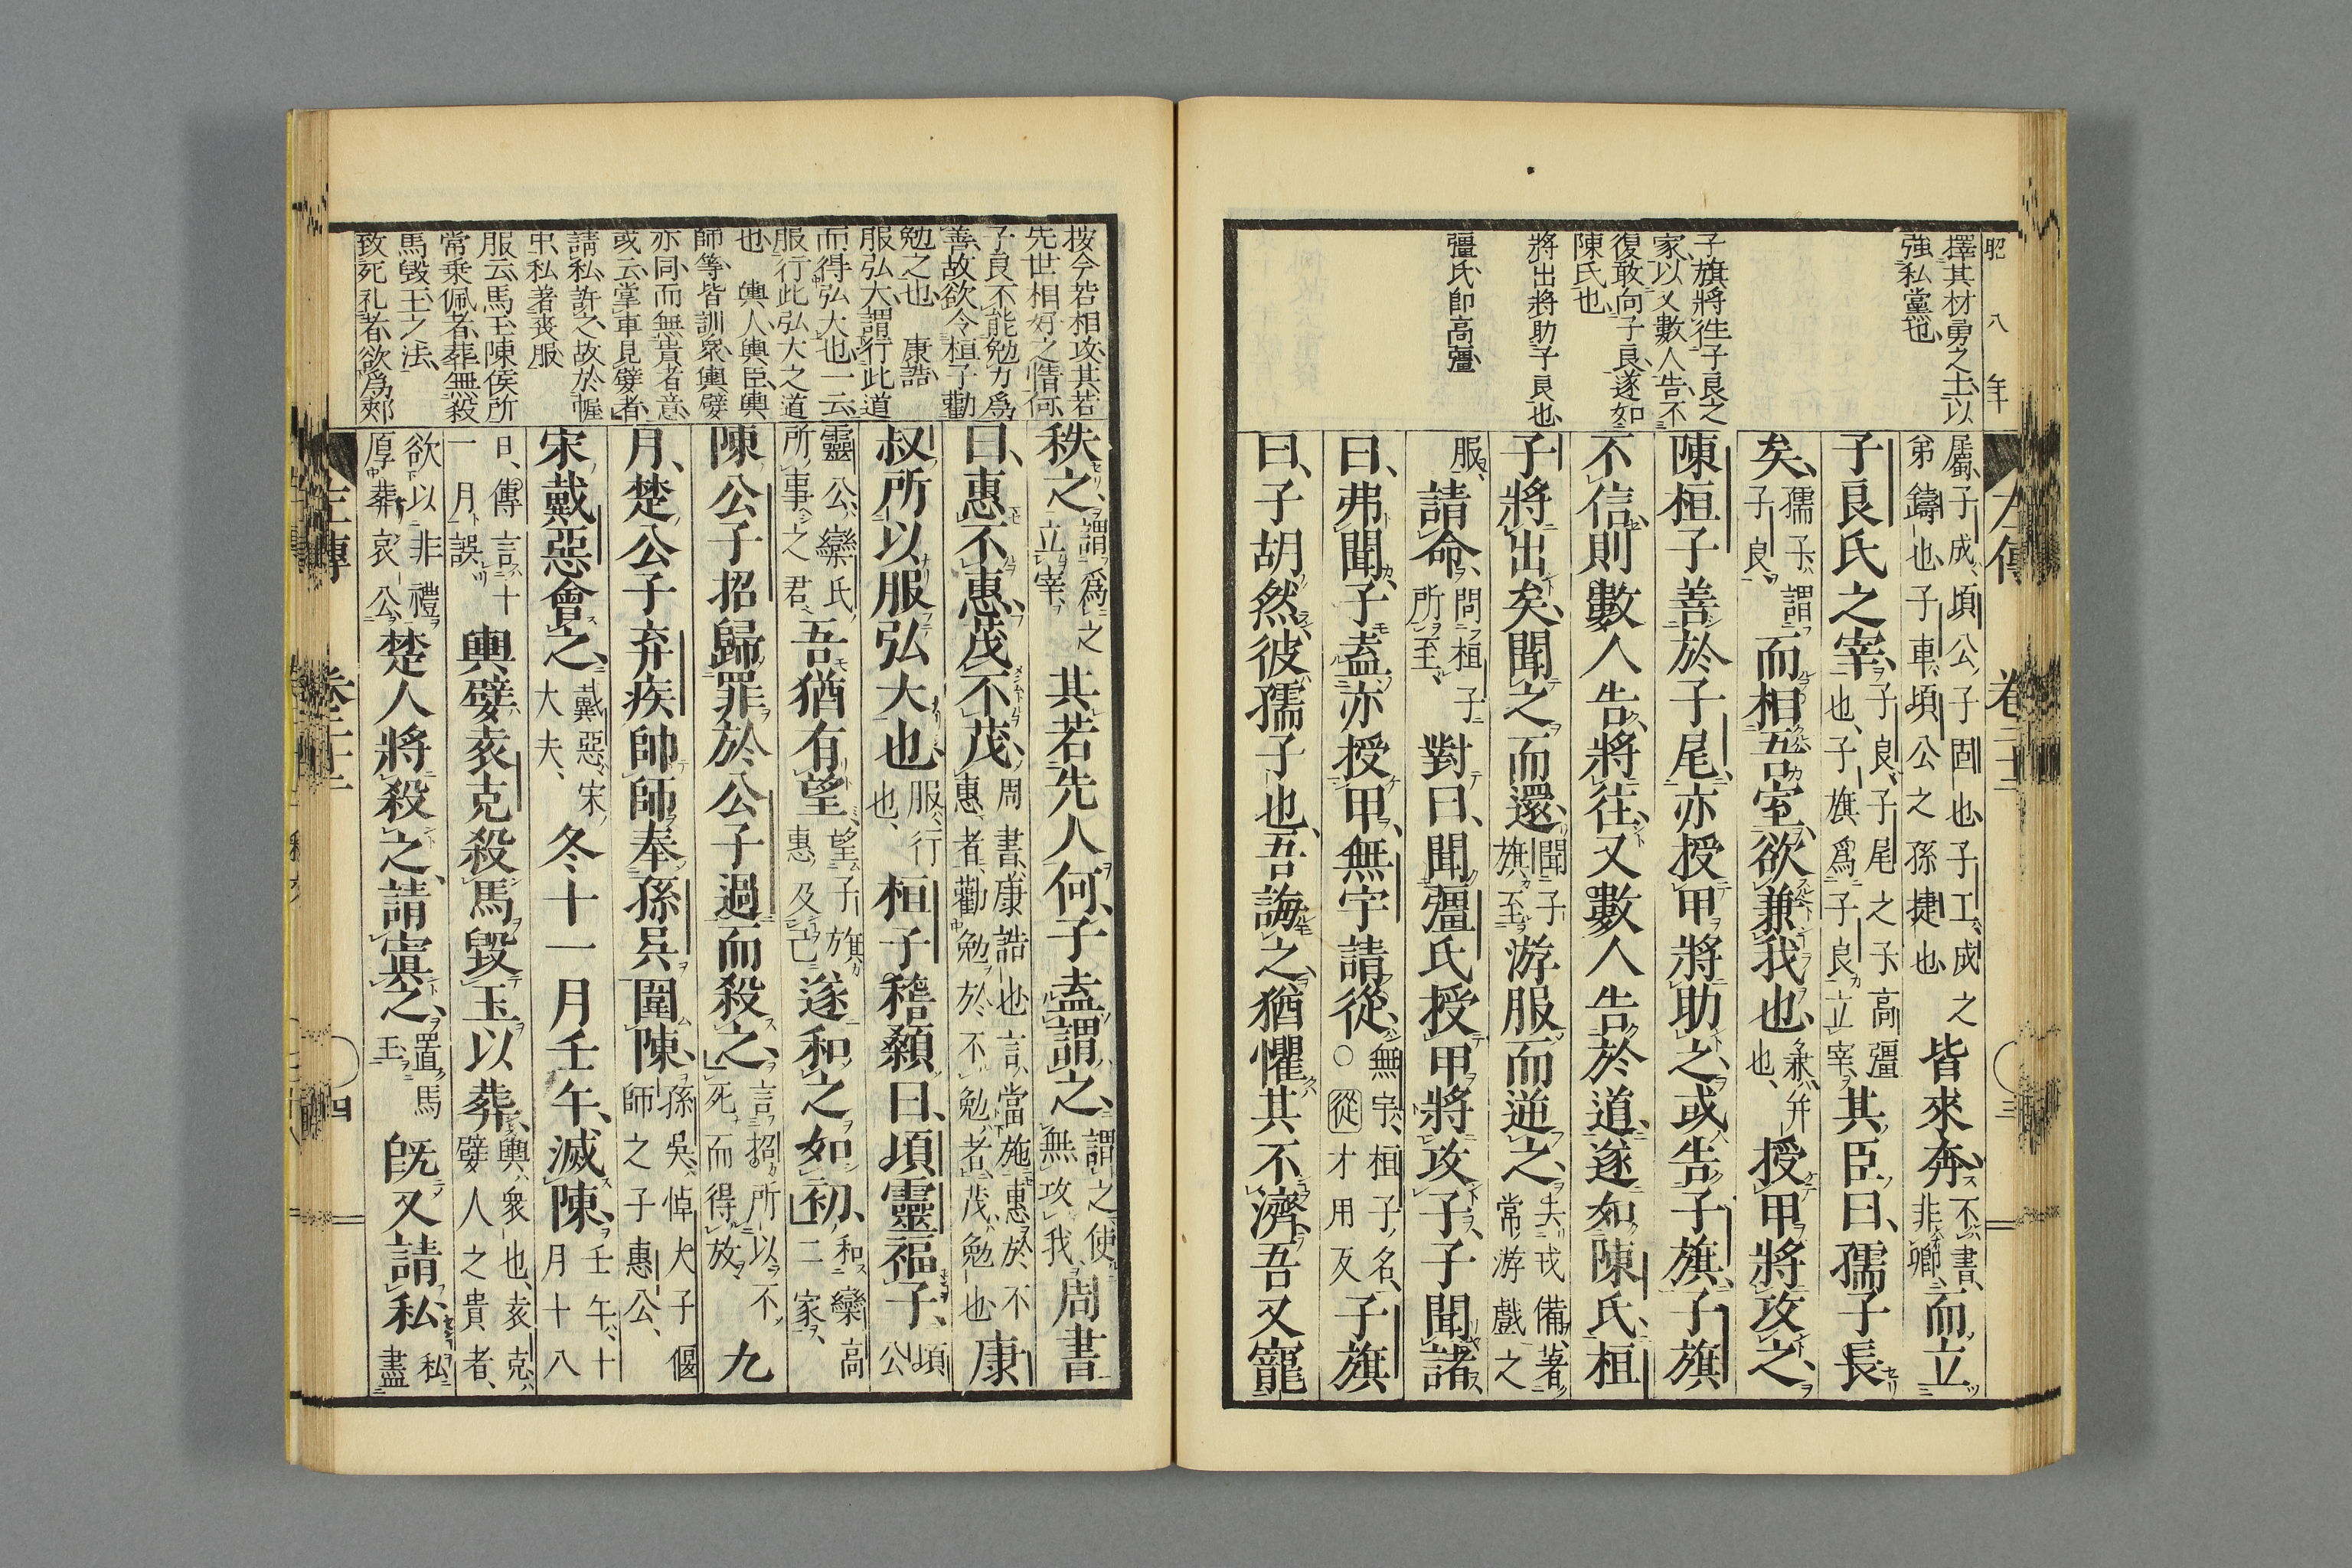 昭 八年
擇其材勇之士以
強私黨也
子旗將往子良之
家以又數人告不
復敢向子良遂如
陳氏也
將出將助子良也
彊氏即高彊
左傳 卷二十二
屬子成頃公子固也子工成之
弟鑄也子車頃公之孫捷也
皆來奔
不書
非卿
而立
子良氏之宰
子良子尾之子高彊
也子旗爲子良立宰
其臣曰孺子長
矣
孺子謂
子良
而相吾室欲兼我也
兼幷
也
授甲將攻之
陳桓子善於子尾亦授甲將助之或告子旗子旗
不信則數人告將往又數人告於道遂如陳氏桓
子將出矣聞之而還
聞子
旗至
游服而逆之
去戎備著
常游戲之
服
請命
問桓子
所至
對曰聞彊氏授甲將攻子子聞諸
曰弗聞子盍亦授甲無宇請從
無宇桓子名
○從才用反
子旗
曰子胡然彼孺子也吾誨之猶懼其不濟吾又寵
按今若相攻其若
先世相好之情何
子良不能勉力爲
善故欲令桓子勸
勉之也 康誥
服弘大謂行此道
而得弘大也一云
服行此弘大之道
也 輿人輿臣輿
師等皆訓衆輿嬖
亦同而無貴者意
或云掌車見嬖者
請私許之故於幄
中私著喪服
服云馬玉陳侯所
常乘佩者葬無殺
馬毀玉之法
致死礼者欲爲郊
秩之
謂爲之
立宰
其若先人何子盍謂之
謂之使
無攻我
周書
曰惠不惠茂不茂
周書康誥也言當施惠於不
惠者勸勉於不勉者茂勉也
康
叔所以服弘大也
服行
也
桓子稽顙曰頃靈福子
頃
公
靈公欒氏
所事之君
吾猶有望
望子旗
惠及己
遂和之如初
和欒高
二家
陳公子招歸罪於公子過而殺之
言招所以不
死而得放
九
月楚公子弃疾帥師奉孫吳圍陳
孫吳悼大子偃
師之子惠公
宋戴惡會之
戴惡宋
大夫
冬十一月壬午滅陳
壬午十
月十八
日傳言十
一月誤
輿嬖袁克殺馬毀玉以葬
輿衆也袁克
嬖人之貴者
欲以非禮
厚葬哀公
楚人將殺之請寘之
置馬
玉
旣又請私
私
盡
左傳 卷二十二 四